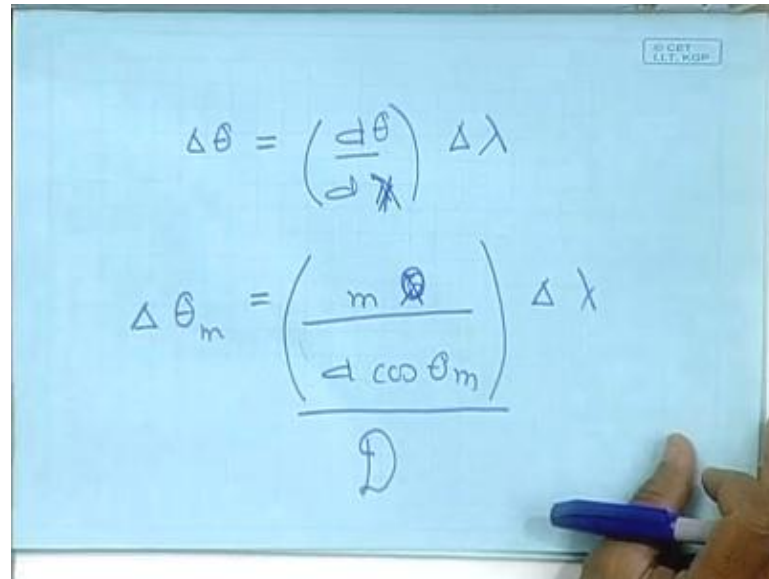 © CET
I.I.T. KGP
Δθ = (dθ/dλ) Δλ
Δθm = (m / d cos θm) Δλ
D